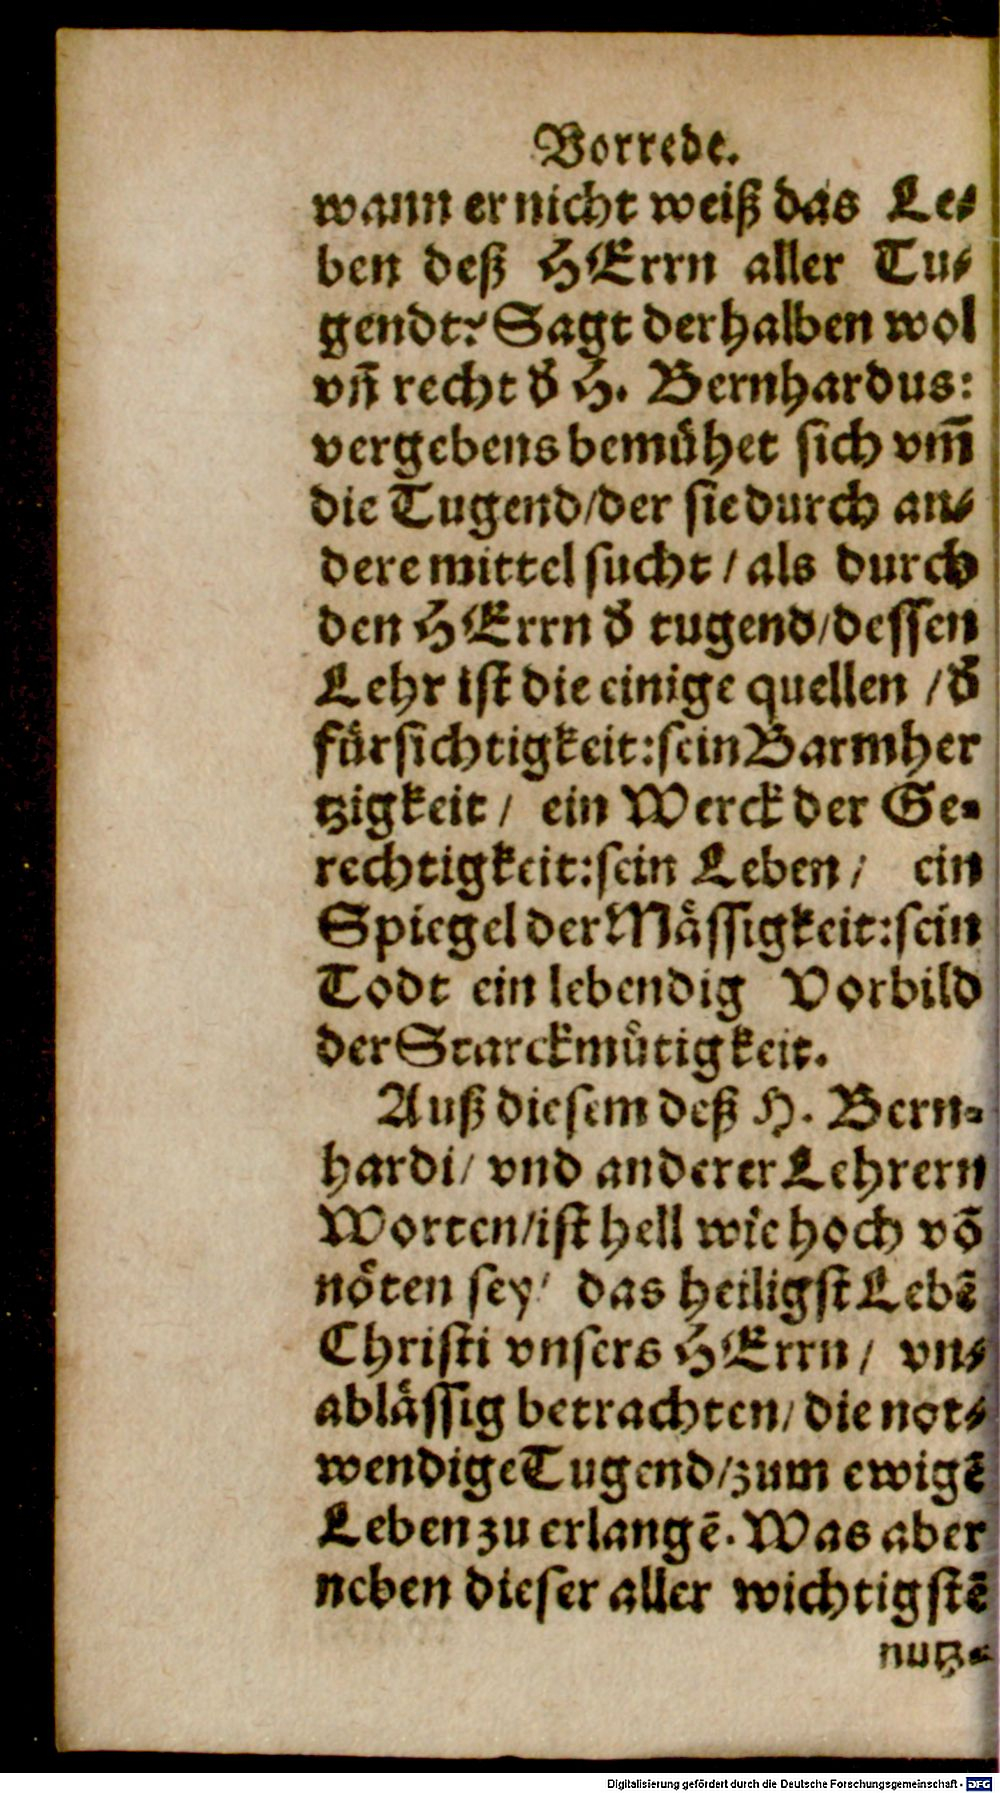 Vorrede.
wann er nicht weiß das Le⸗
ben deß HErrn aller Tu⸗
gendt? Sagt derhalben wol
vñ recht d̕ H. Bernhardus:
vergebens bemühet sich vm̃
die Tugend/der sie durch an⸗
dere mittel sucht / als durch
den HErrn d̕ tugend/dessen
Lehr ist die einige quellen / d̕
fürsichtigkeit: sein Barmher
tzigkeit / ein Werck der Ge⸗
rechtigkeit: sein Leben / ein
Spiegel der Mässigkeit: sein
Todt ein lebendig Vorbild
der Starckmütigkeit.
Auß diesem deß H. Bern⸗
hardi / vnd anderer Lehrern
Worten/ist hell wie hoch võ
nöten sey / das heiligst Lebẽ
Christi vnsers HErrn / vn⸗
ablässig betrachten / die not⸗
wendige Tugend/zum ewigẽ
Leben zu erlangẽ. Was aber
neben dieser aller wichtigstẽ
nutz⸗
Digitalisierung gefördert durch die Deutsche Forschungsgemeinschaft - DFG